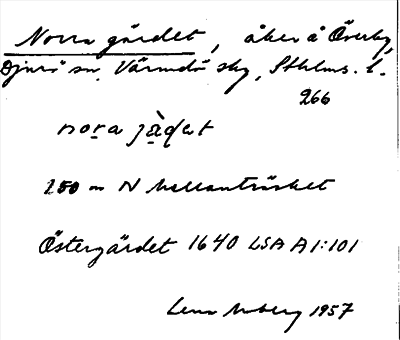 Norra gärdet, åker å Överby,
Djurö sn, Värmdö skg, Sthlms. l.
266
nora jàdet
250 m N Mellanträsket
Östergärdet 1640 LSA A1:101
Lena 1957